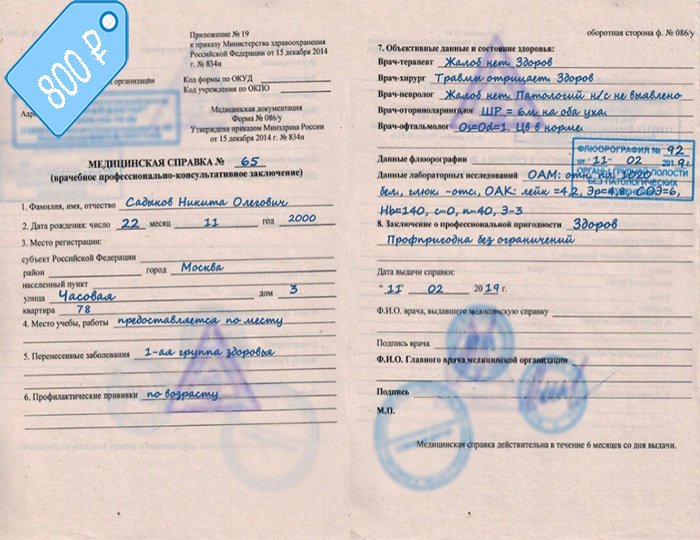 800 ₽
Приложение № 19
к приказу Министерства здравоохранения
Российской Федерации от 15 декабря 2014
г. № 834н
организации
Код формы по ОКУД
Код учреждения по ОКПО
Медицинская документация
Форма № 086/у
Утверждена приказом Минздрава России
от 15 декабря 2014 г. № 834н
МЕДИЦИНСКАЯ СПРАВКА № 65
(врачебное профессионально-консультативное заключение)
1. Фамилия, имя, отчество Садыков Никита Олегович
2. Дата рождения: число 22 месяц 11 год 2000
3. Место регистрации:
субъект Российской Федерации
район город Москва
населенный пункт
улица Часовая дом 3
квартира 78
4. Место учебы, работы предоставляется по месту
5. Перенесенные заболевания 1-ая группа здоровья
6. Профилактические прививки по возрасту
оборотная сторона ф. № 086/у
7. Объективные данные и состояние здоровья:
Врач-терапевт Жалоб нет. Здоров
Врач-хирург Травмы отрицает. Здоров
Врач-невролог Жалоб нет. Патологий н/с не выявлено
Врач-оториноларинголог ШР = 6м, на оба уха.
Врач-офтальмолог Os=Od=1. Цв в норме.
ФЛЮОРОГРАФИЯ № 92
от 11- 02 2019г.
ОРГАНЫ ГРУДНОЙ ПОЛОСТИ
БЕЗ ПАТОЛОГИЧЕСКИХ
Данные флюорографии
Данные лабораторных исследований ОАМ: отн. пл 1020
бел, глюк -отс, ОАК: лейк =4,2, Эр=4,8, СОЭ=6,
Hb=140, с-0, п-40, Э-3
8. Заключение о профессиональной пригодности Здоров
Профпригодна без ограничений
Дата выдачи справки:
" 11 " 02 2019 г.
Ф.И.О. врача, выдавшего медицинскую справку
Подпись врача
Ф.И.О. Главного врача медицинской организации
Подпись
М.П.
Медицинская справка действительна в течение 6 месяцев со дня выдачи.